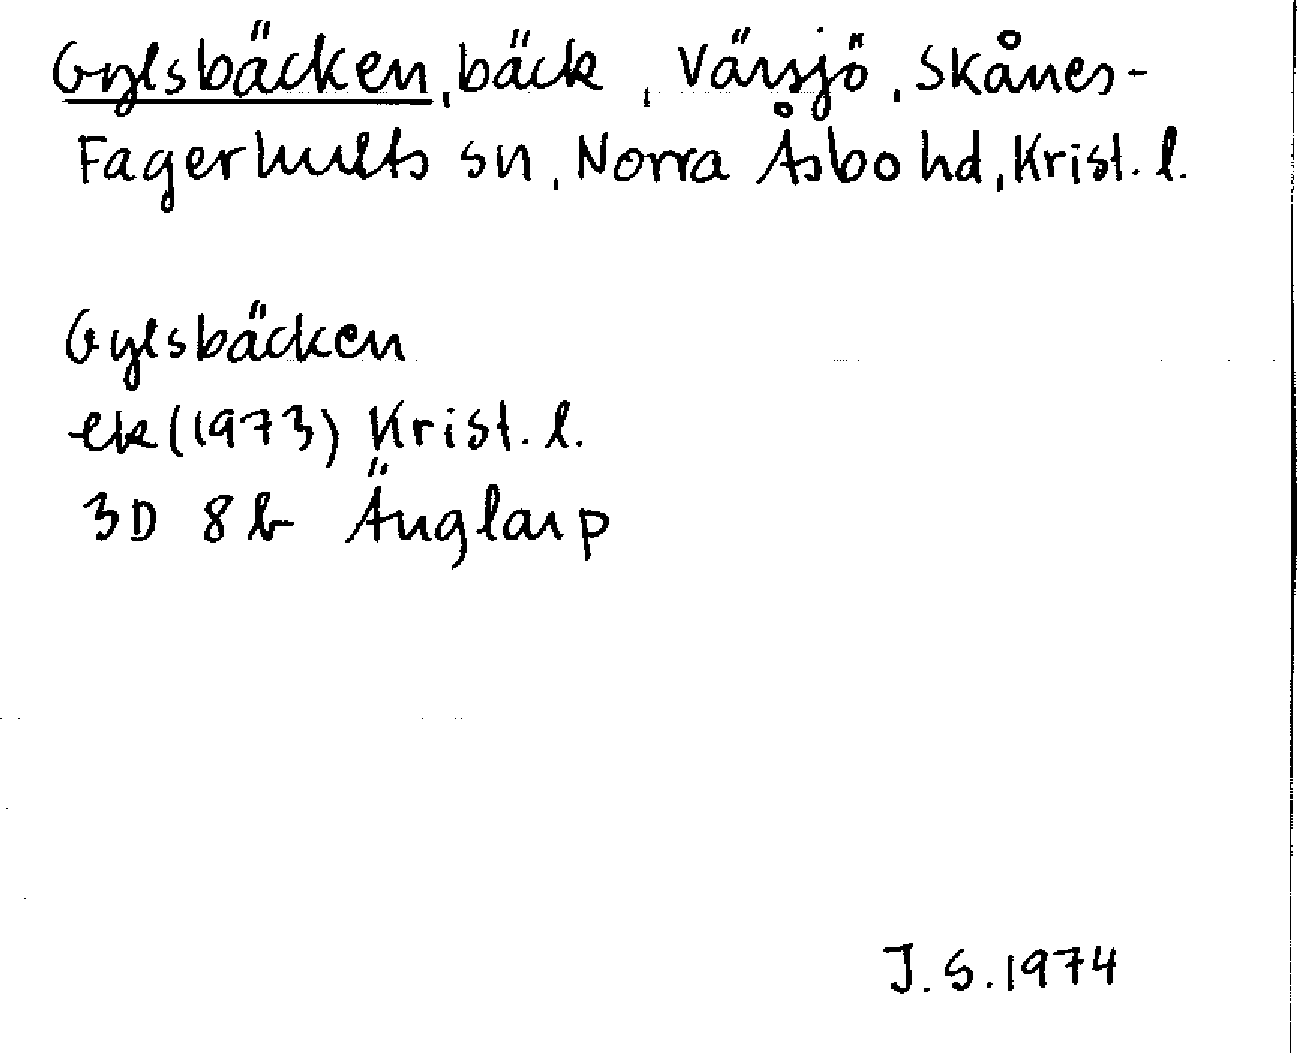 Gylsbäcken, bäck, Värsjö, Skånes-
Fagerhults sn, Norra Åsbo hd, Krist. l.
Gylsbäcken
ek (1973) Krist. l.
3D 8b Änglarp
J. S. 1974